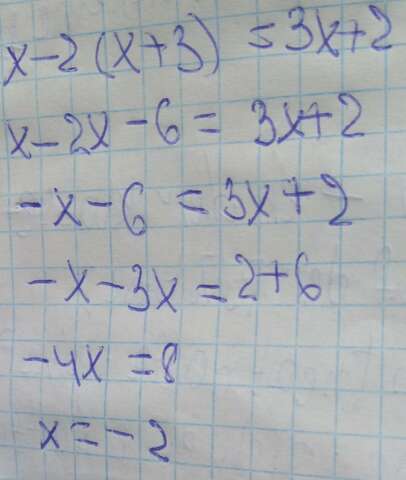 x-2(x+3) = 3x+2
x-2x-6= 3x+2
-x-6 = 3x+2
-x-3x=2+6
-4x=8
x=-2